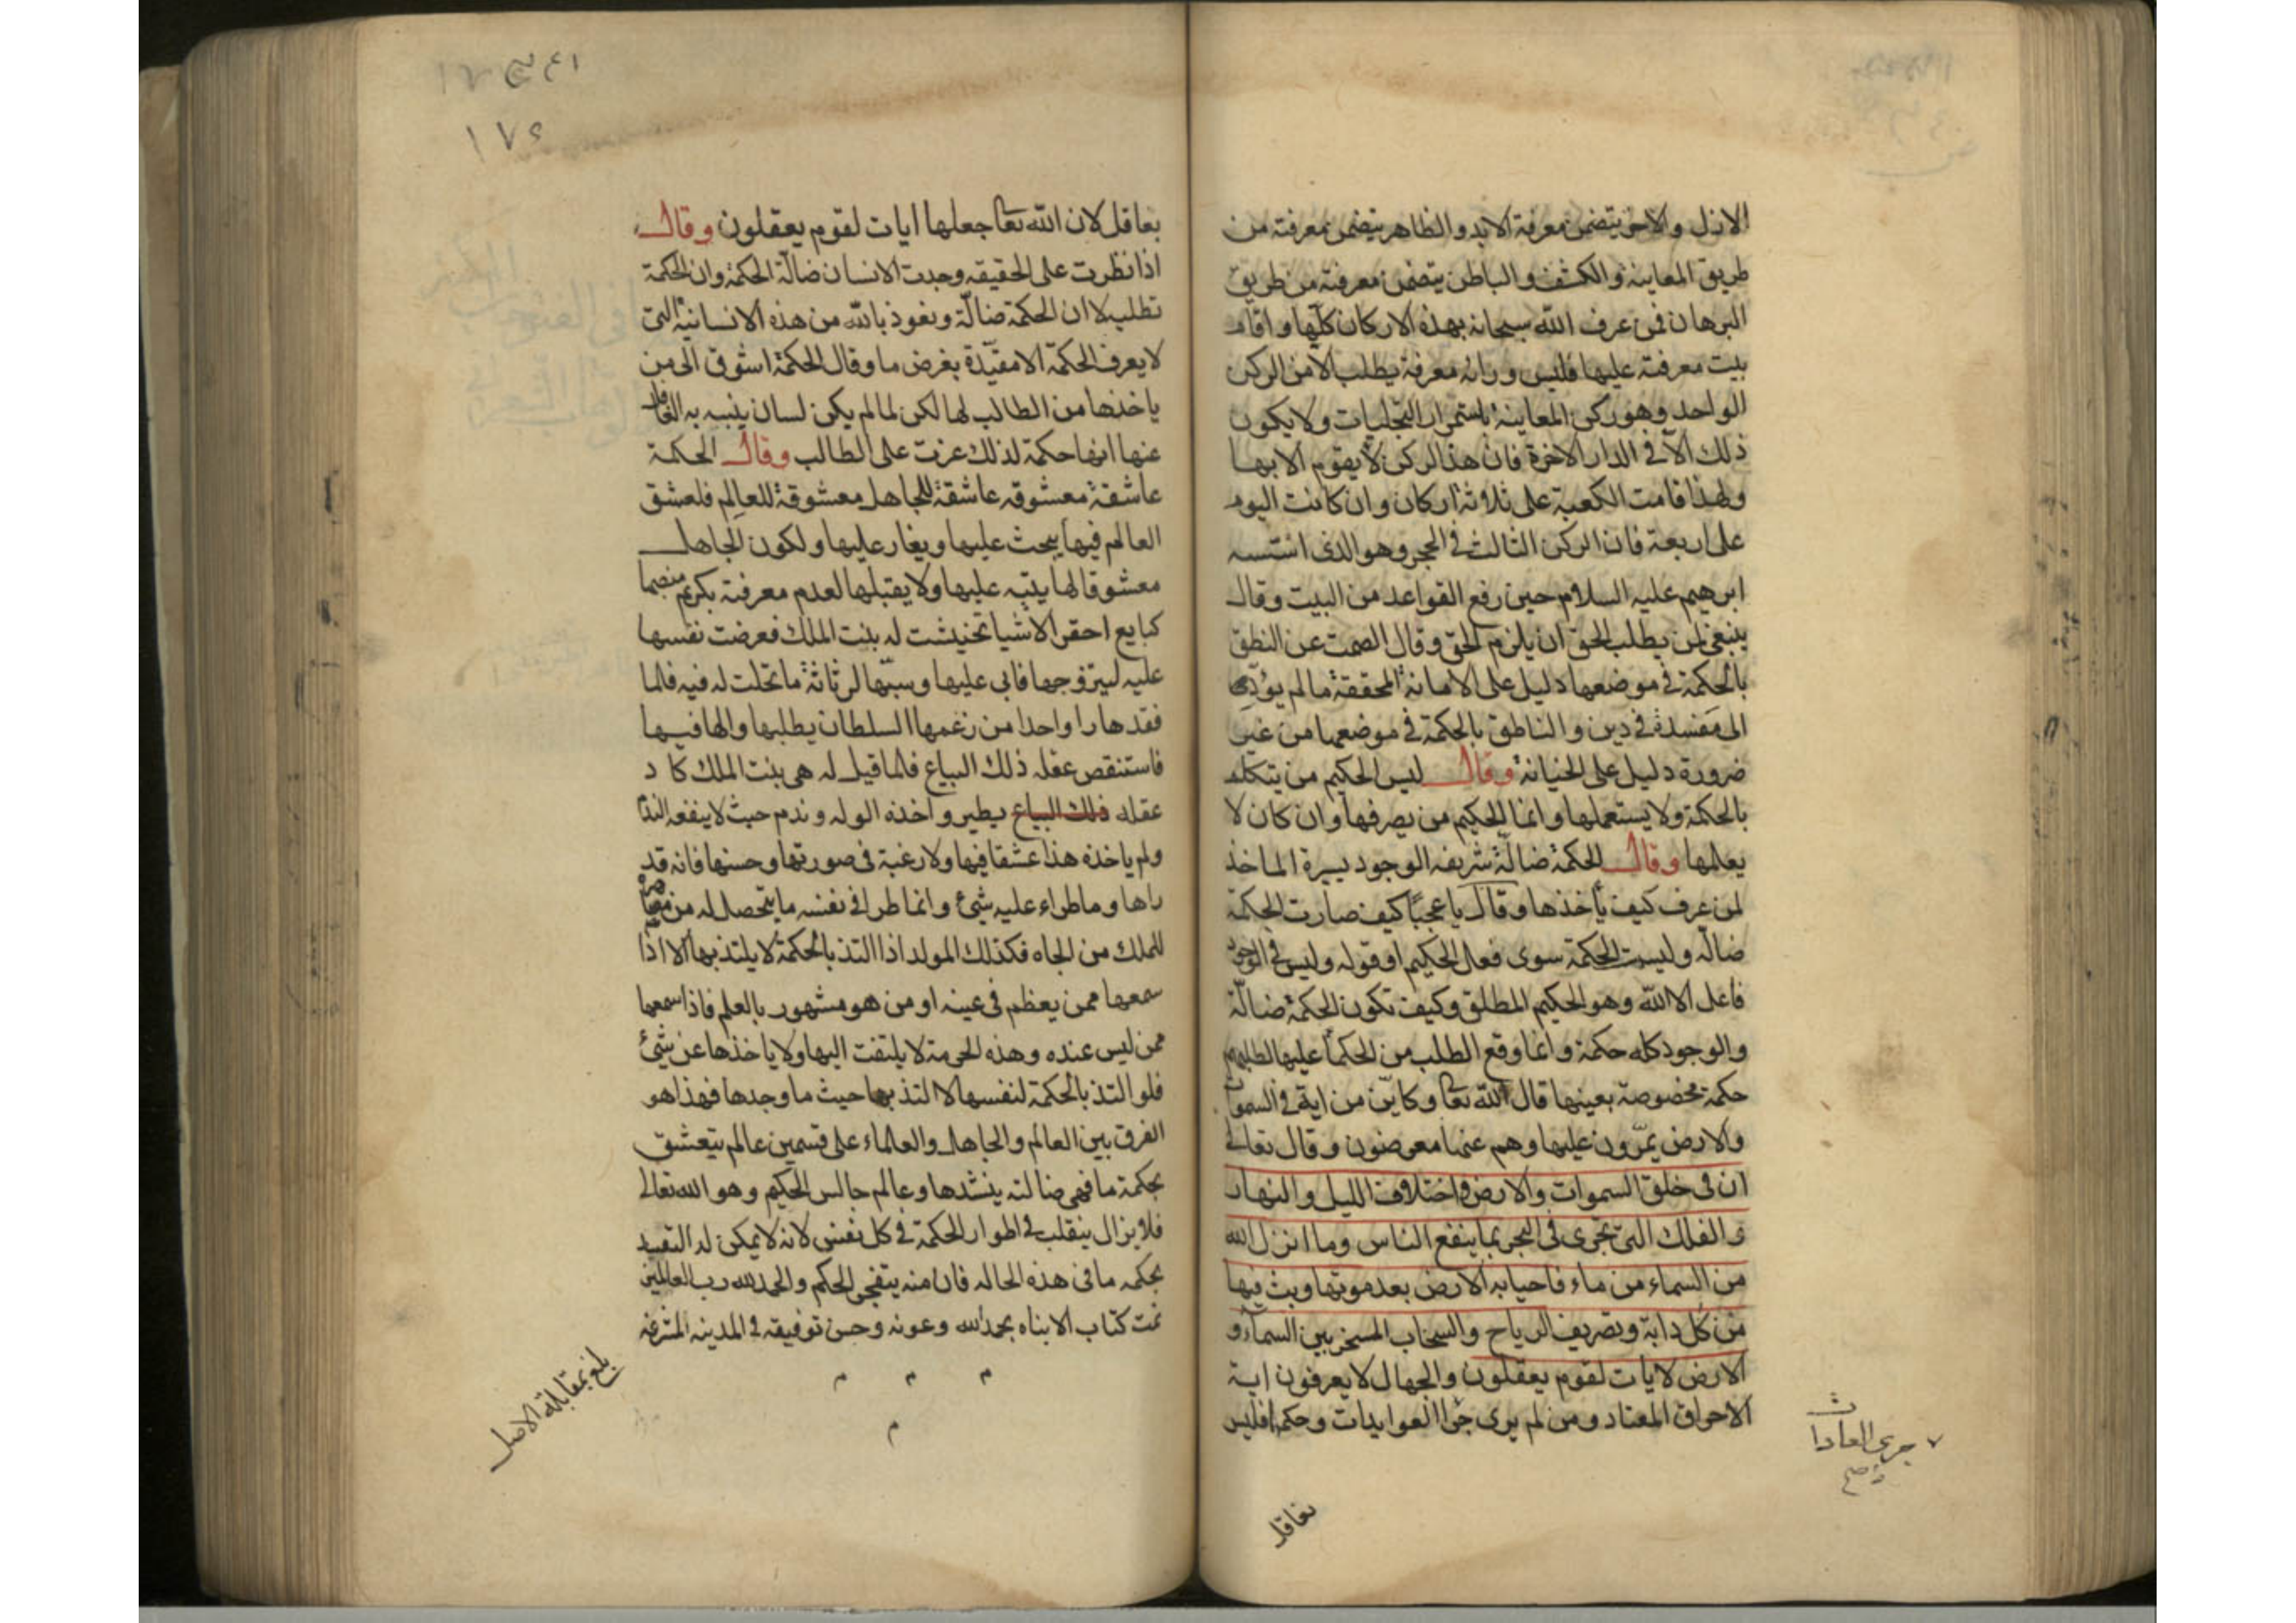 الازل والاخر يتضمن معرفة الابد والظاهر يتضمن معرفته من
طريق المعاينة والكشف والباطن يتضمن معرفته من طريق
البرهان فمن عرف الله سبحانه بهذه الاركان كلها واقام
بيت معرفته عليها فليس وراه معرفة يطلب الا من الركن
الواحد وهو ركن المعاينة باستمرار التجليات ولا يكون
ذلك الا في الدار الاخرة فان هذا الركن لا يقوم الا بها
ولهذا قامت الكعبة على ثلاثة اركان وان كانت اليوم
على اربعة فان الركن الثالث في الحجر وهو الذي اسسه
ابرهيم عليه السلام حين رفع القواعد من البيت وقال
ينبغي لمن يطلب الحق ان يلزم الحق وقال الصمت عن النطق
بالحكمة في موضعها دليل على الامانة المحققة ما لم يؤد
الى مفسدة في دين والناطق بالحكمة في موضعها من غير
ضرورة دليل على الخيانة وقال ليس الحكيم من يتكلم
بالحكمة ولا يستعملها وانما الحكيم من يصرفها وان كان لا
يعلمها وقال الحكمة ضالة شريفه الوجود يسيرة الماخذ
لمن عرف كيف يأخذها وقال يا عجبا كيف صارت الحكمة
ضاله وليست الحكمة سوى فعل الحكيم او قوله وليس في الوجود
فاعل الا الله وهو الحكيم المطلق وكيف تكون الحكمة ضالة
والوجود كله حكمة وانما وقع الطلب من الحكما عليها لطلبهم
حكمة مخصوصة بعينها قال الله تعا وكاين من اية في السموات
والارض يمرون عليها وهم عنها معرضون وقال تعالى
ان في خلق السموات والارض واختلاف الليل والنهار
والفلك التي تجرى في البحر بما ينفع الناس وما انزل الله
من السماء من ماء فاحيا به الارض بعد موتها وبث فيها
من كل دابة وتصريف الرياح والسحاب المسخر بين السماء و
الارض لايات لقوم يعقلون والجهال لا يعرفون اية
الا خرق المعتاد ومن لم يرى جرا العوايد ايات وحكم فليس
جرى العادات
صح
بعاقل
١٧٤
بعاقل لان الله تعا جعلها ايات لقوم يعقلون وقال
اذا نظرت على الحقيقه وجدت الانسان ضالة الحكمة وان الحكمة
تطلب لا ان الحكمة ضالة ونعوذ بالله من هذه الانسانية التي
لا يعرف الحكمة الا مقيدة بغرض ما وقال الحكمة اشوق الى من
ياخذها من الطالب لها لكن لما لم يكن لسان ينبه به الغافل
عنها انها حكمة لذلك عزت على الطالب وقال الحكمة
عاشقة معشوقه عاشقة للجاهل معشوقة للعالم فلعشق
العالم فيها يبحث عليها ويغار عليها ولكون الجاهل
معشوقا لها يتيه عليها ولا يقبلها لعدم معرفته بكريم منصبها
كبايع احقر الاشيا تخنشت له بنت الملك فعرضت نفسها
عليه ليتزوجها فابى عليها وسبها لرثاثة ما تحلت له فيه فلما
فقدها را واحدا من زعمها السلطان يطلبها والها فيها
فاستنقص عقله ذلك البياع فلما قيل له هي بنت الملك كا د
عقله ذلك البياع يطير واخذه الوله وندم حيث لا ينفعه الندم
ولم ياخذه هذا عشقا فيها ولا رغبة في صورتها وحسنها فانه قد
راها وما طراء عليه شئ وانما طرا في نفسه ما يتحصل له من مصاهرة
الملك من الجاه فكذلك المولد اذا التذ بالحكمة لا يلتذ بها الا اذا
سمعها ممن يعظم في عينه او من هو مشهور بالعلم فاذا سمعها
ممن ليس عنده وهذه الحرمة لا يلتفت اليها ولا ياخذها عن شئ
فلو التذ بالحكمة لنفسها لالتذ بها حيث ما وجدها فهذا هو
الفرق بين العالم والجاهل والعلماء على قسمين عالم يتعشق
بحكمة ما فهي ضالته ينشدها وعالم جالس الحكيم وهو الله تعالى
فلا يزال ينقلب في اطوار الحكمة في كل نفس لانه لا يمكن له التقييد
بحكمه ما في هذه الحاله فان منه يتفجر الحكم والحمد لله رب العالمين
تمت كتاب الانباه بحمد الله وعونه وحسن توفيقه في المدينه المشرفه
م م م
م
بلغ بمقابلة الاصل